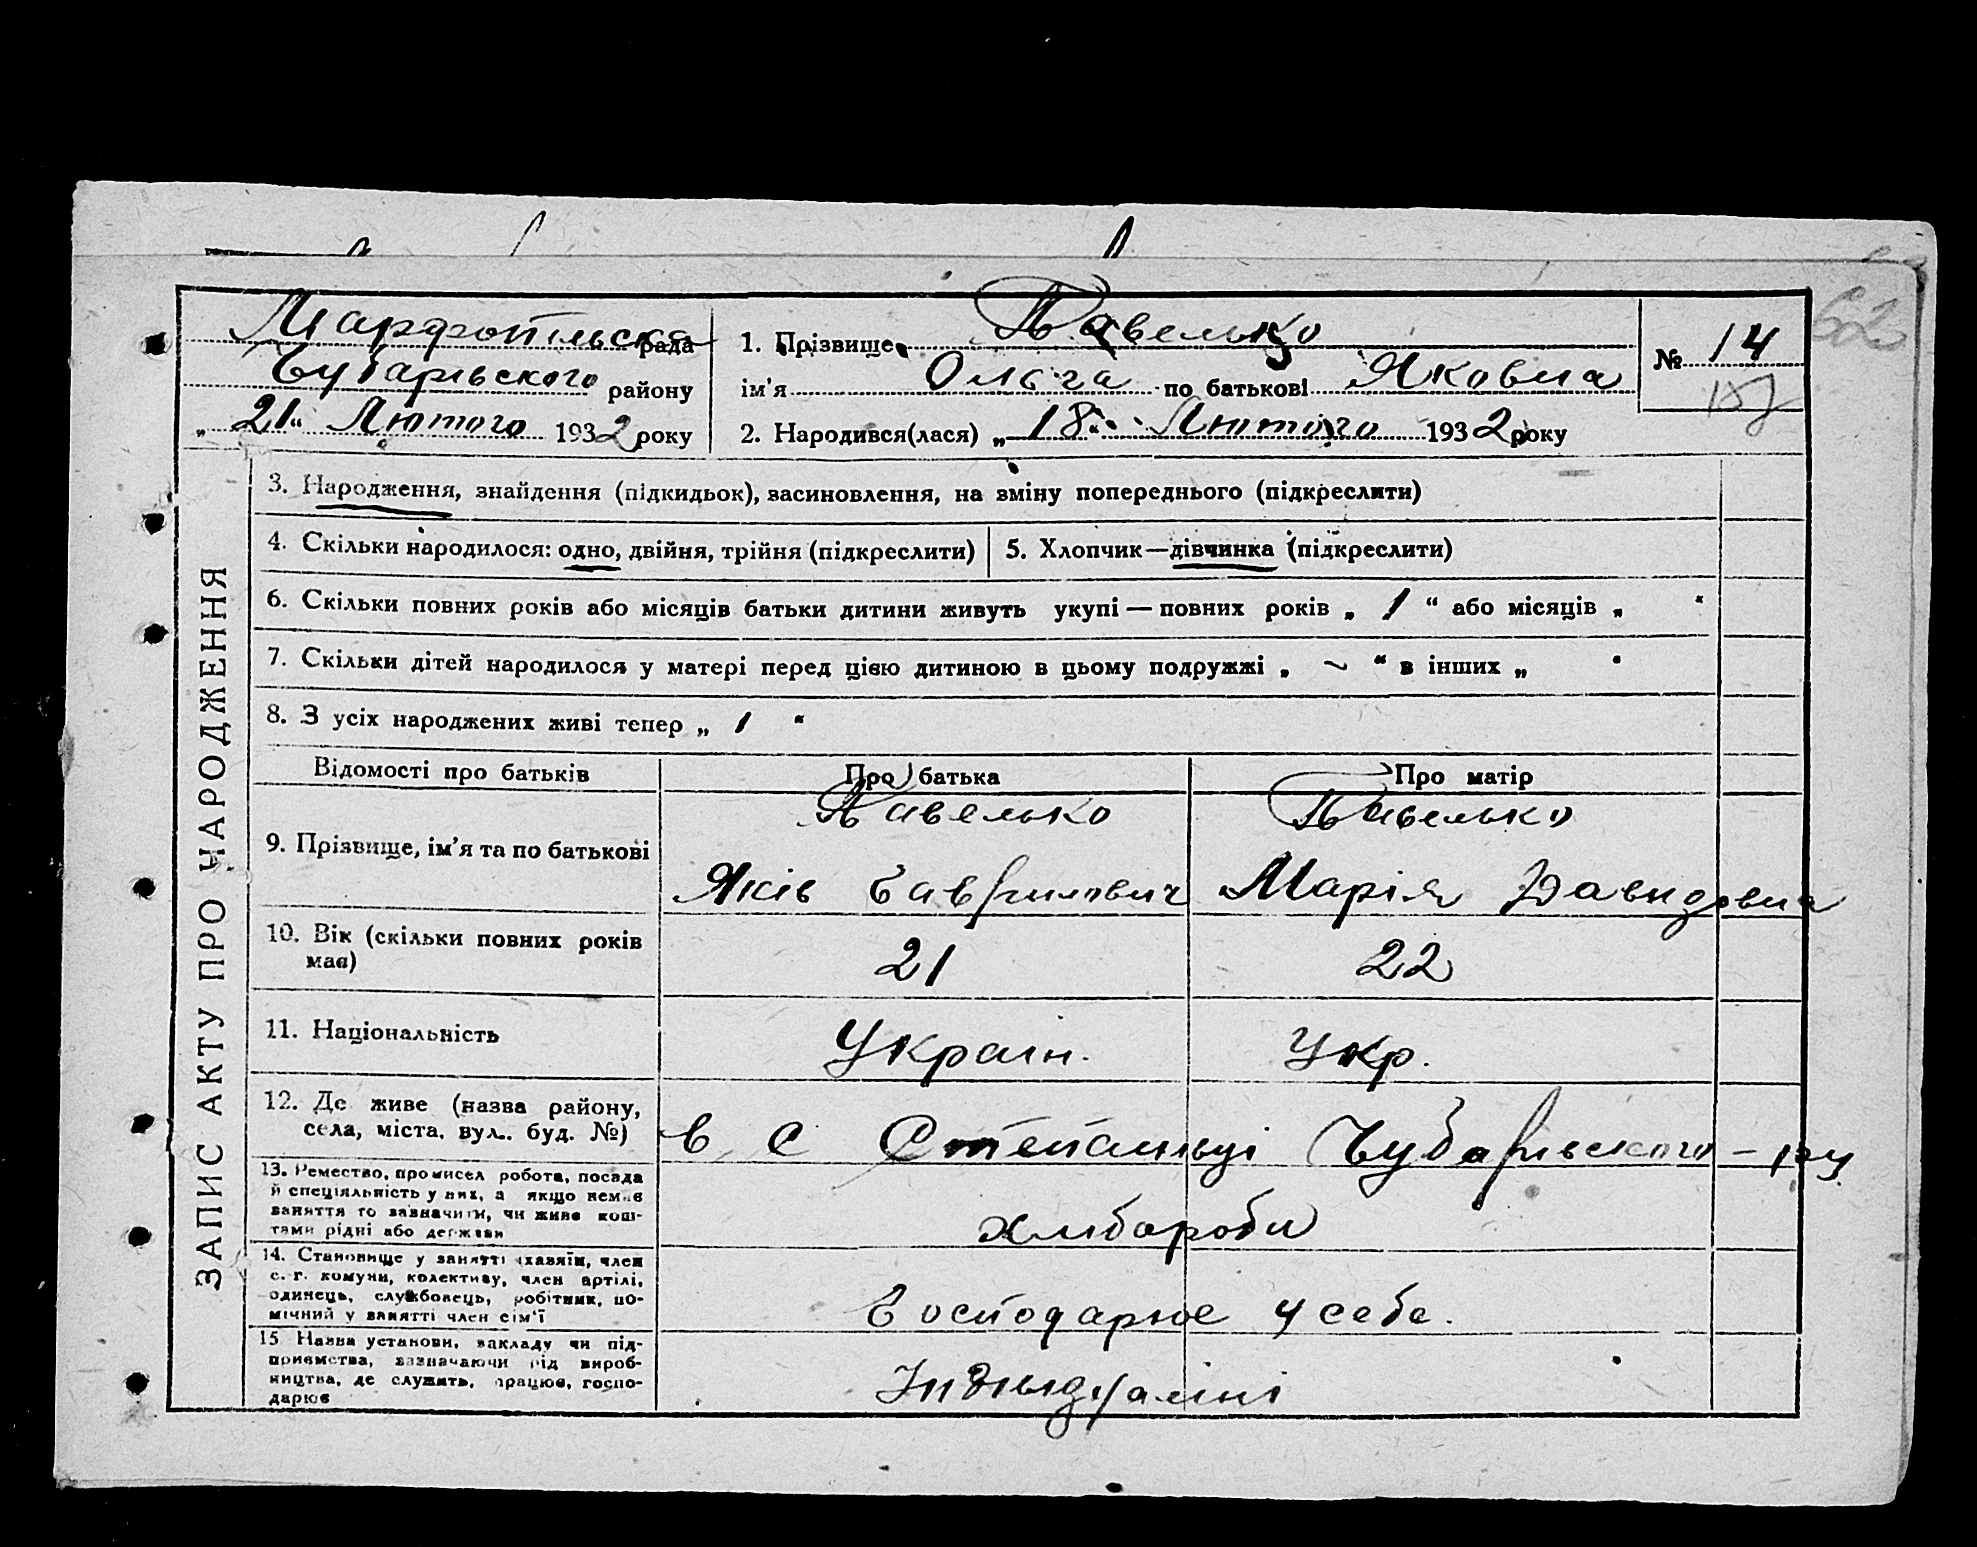 62
Марфопільська рада
Чубарівського району
„21“ Лютого 1932 року
1. Прізвище Павелько
ім'я Ольга по батькові Яковна
2. Народився(лася) „18“ Лютого 1932 року
№ 14
ЗАПИС АКТУ ПРО НАРОДЖЕННЯ
3. Народження, знайдення (підкидьок), засиновлення, на зміну попереднього (підкреслити)
4. Скільки народилося: одно, двійня, трійня (підкреслити)
5. Хлопчик—дівчинка (підкреслити)
6. Скільки повних років або місяців батьки дитини живуть укупі — повних років „ 1 “ або місяців „ “
7. Скільки дітей народилося у матері перед цією дитиною в цьому подружжі „ ~ “ в інших „ “
8. З усіх народжених живі тепер „ 1 “
Відомості про батьків
Про батька
Про матір
9. Прізвище, ім'я та по батькові
Павелько
Яків Гаврилович
Павелько
Марія Давидовна
10. Вік (скільки повних років
має)
21
22
11. Національність
Україн.
Укр.
12. Де живе (назва району,
села, міста, вул.. буд. №)
в с Степанівці Чубарівського - р-у
13. Ремество, промисел робота, посада
й спеціяльність у них, а якщо немає
заняття то зазначити, чи живе кош-
тами рідні або держави
хлібароби
14. Становище у занятті (хазяїн, член
с.-г. комуни, колективу, член артілі,
одинець, службовець, робітник, по-
мічний у занятті член сім'ї
Господарює у себе.
15 Назва установи, закладу чи під-
приємства, зазначаючи рід вироб-
ництва, де служить, працює, госпо-
дарює